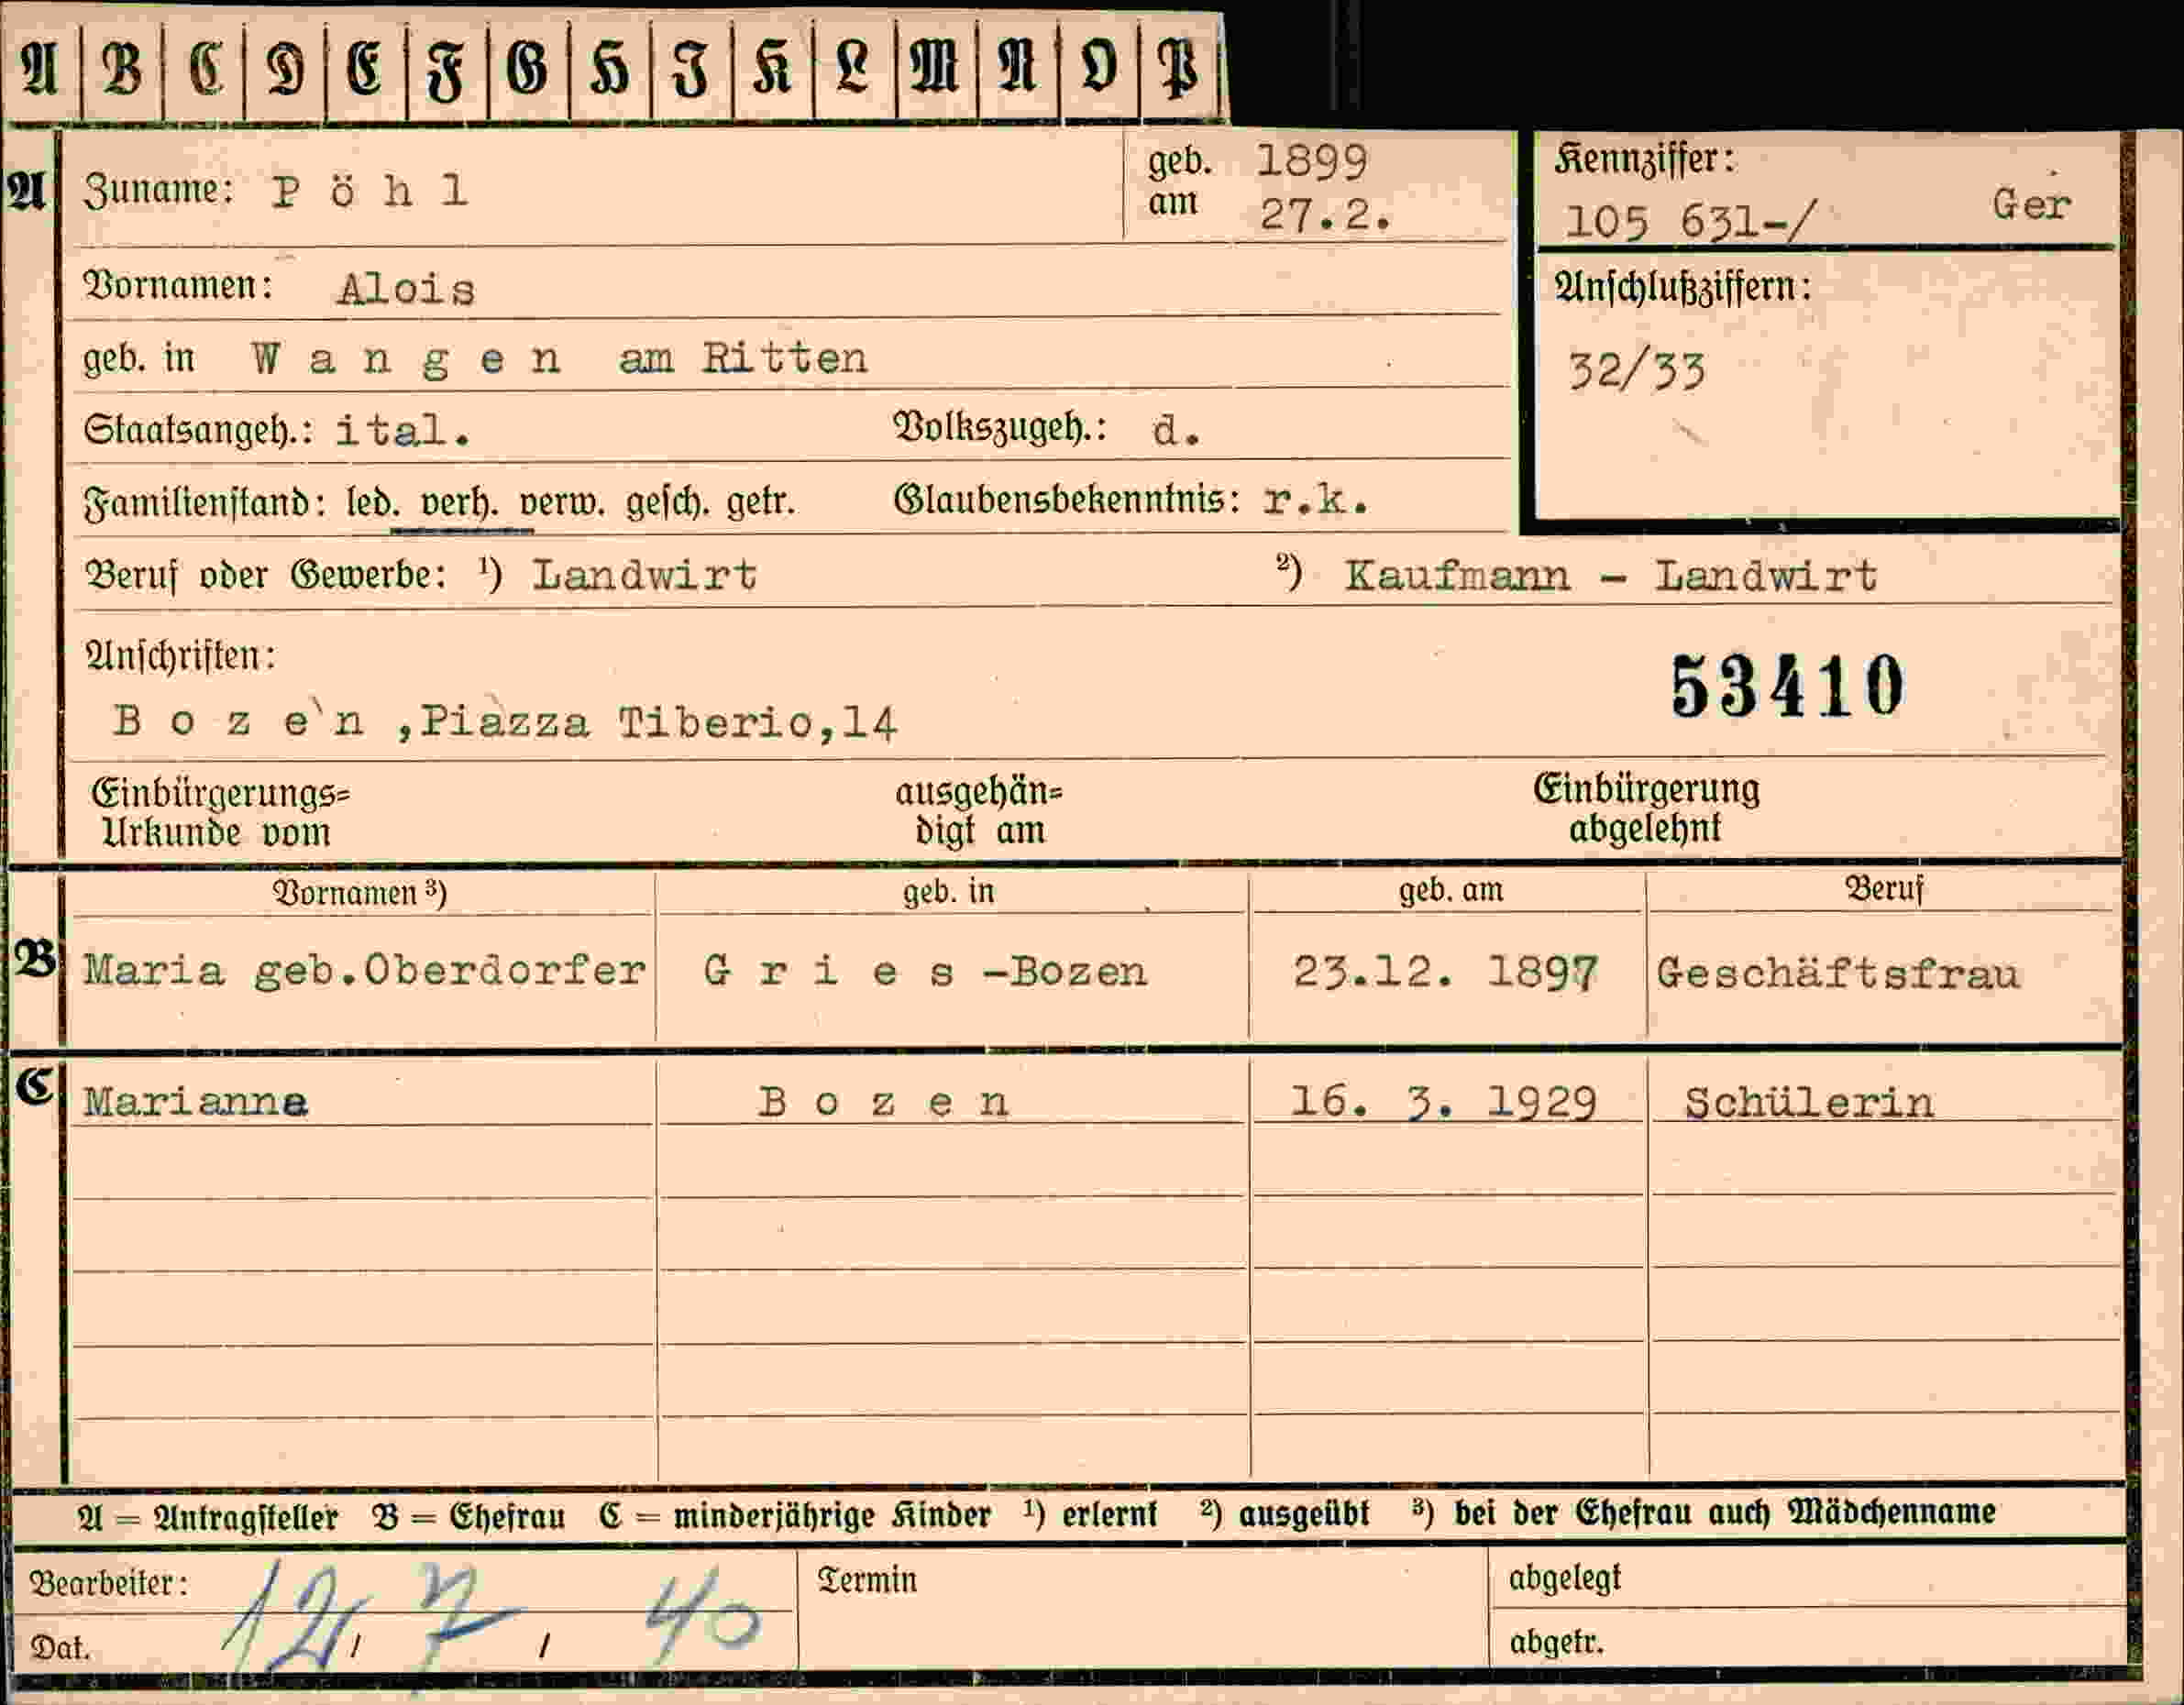 A B C D E F G H I K L M N O P
A Zuname: P ö h l geb. am 1899 27.2. Kennziffer: 105 631-/ Ger
Vornamen: Alois Anschlußziffern:
geb. in W a n g e n am Ritten 32/33
Staatsangeh.: ital. Volkszugeh.: d.
Familienstand: led. verh. verw. gesch. getr. Glaubensbekenntnis: r.k.
Beruf oder Gewerbe: ¹) Landwirt ²) Kaufmann - Landwirt
Anschriften:
53410
B o z e n ,Piazza Tiberio,14
Einbürgerungs= ausgehän= Einbürgerung
Urkunde vom digt am abgelehnt
Vornamen ³) geb. in geb. am Beruf
B Maria geb.Oberdorfer G r i e s -Bozen 23.12. 1897 Geschäftsfrau
C Marianne B o z e n 16. 3. 1929 Schülerin
A = Antragsteller B = Ehefrau C = minderjährige Kinder ¹) erlernt ²) ausgeübt ³) bei der Ehefrau auch Mädchenname
Bearbeiter: Termin abgelegt
Dat. 12/ 7 / 40 abgetr.